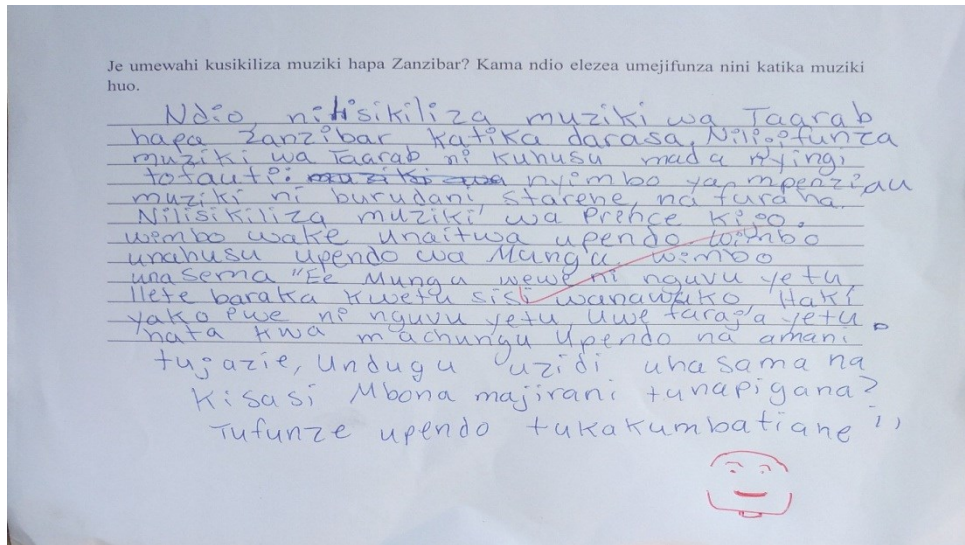 Je umewahi kusikiliza muziki hapa Zanzibar? Kama ndio elezea umejifunza nini katika muziki
huo.
Ndio, nilisikiliza muziki wa Taarab
hapa Zanzibar katika darasa, Nilijifunza
muziki wa Taarab ni kuhusu mada nyingi
tofauti: nyimbo ya mpenzi au
muziki ni burudani, starehe, na furaha.
Nilisikiliza muziki wa Prence Kijo.
wimbo wake unaitwa upendo. wimbo
unahusu upendo wa Mungu. wimbo
unasema "Ee Mungu wewe ni nguvu yetu
Ilete baraka kwetu sisi wanawako, Haki
yako iwe ni nguvu yetu uwe faraja yetu.
hata kwa machungu Upendo na amani
tujazie, Undugu uzidi uhasama na
Kisasi Mbona majirani tunapigana?
Tufunze upendo tukakumbatiane"